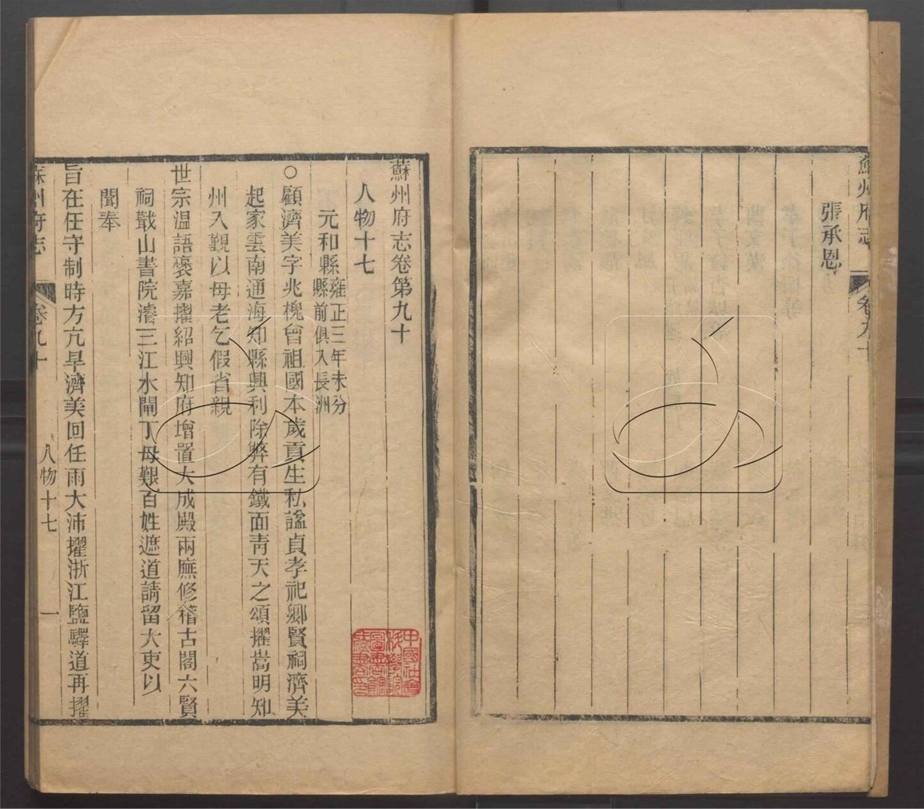 蘇州府志
卷九十
張承恩
蘇州府志卷第九十
人物十七
元和縣雍正三年未分
縣前俱入長洲
○顧濟美字兆槐曾祖國本歲貢生私諡貞孝祀鄉賢祠濟美
起家雲南通海知縣興利除弊有鐵面靑天之頌擢嵩明知
州入覲以母老乞假省親
世宗溫語褒嘉擢紹興知府增置大成殿兩廡修稽古閣六賢
祠蕺山書院濬三江水閘丁母艱百姓遮道請留大吏以
聞奉
旨在任守制時方亢旱濟美回任雨大沛擢浙江鹽驛道再擢
蘇州府志
卷九十
人物十七
一